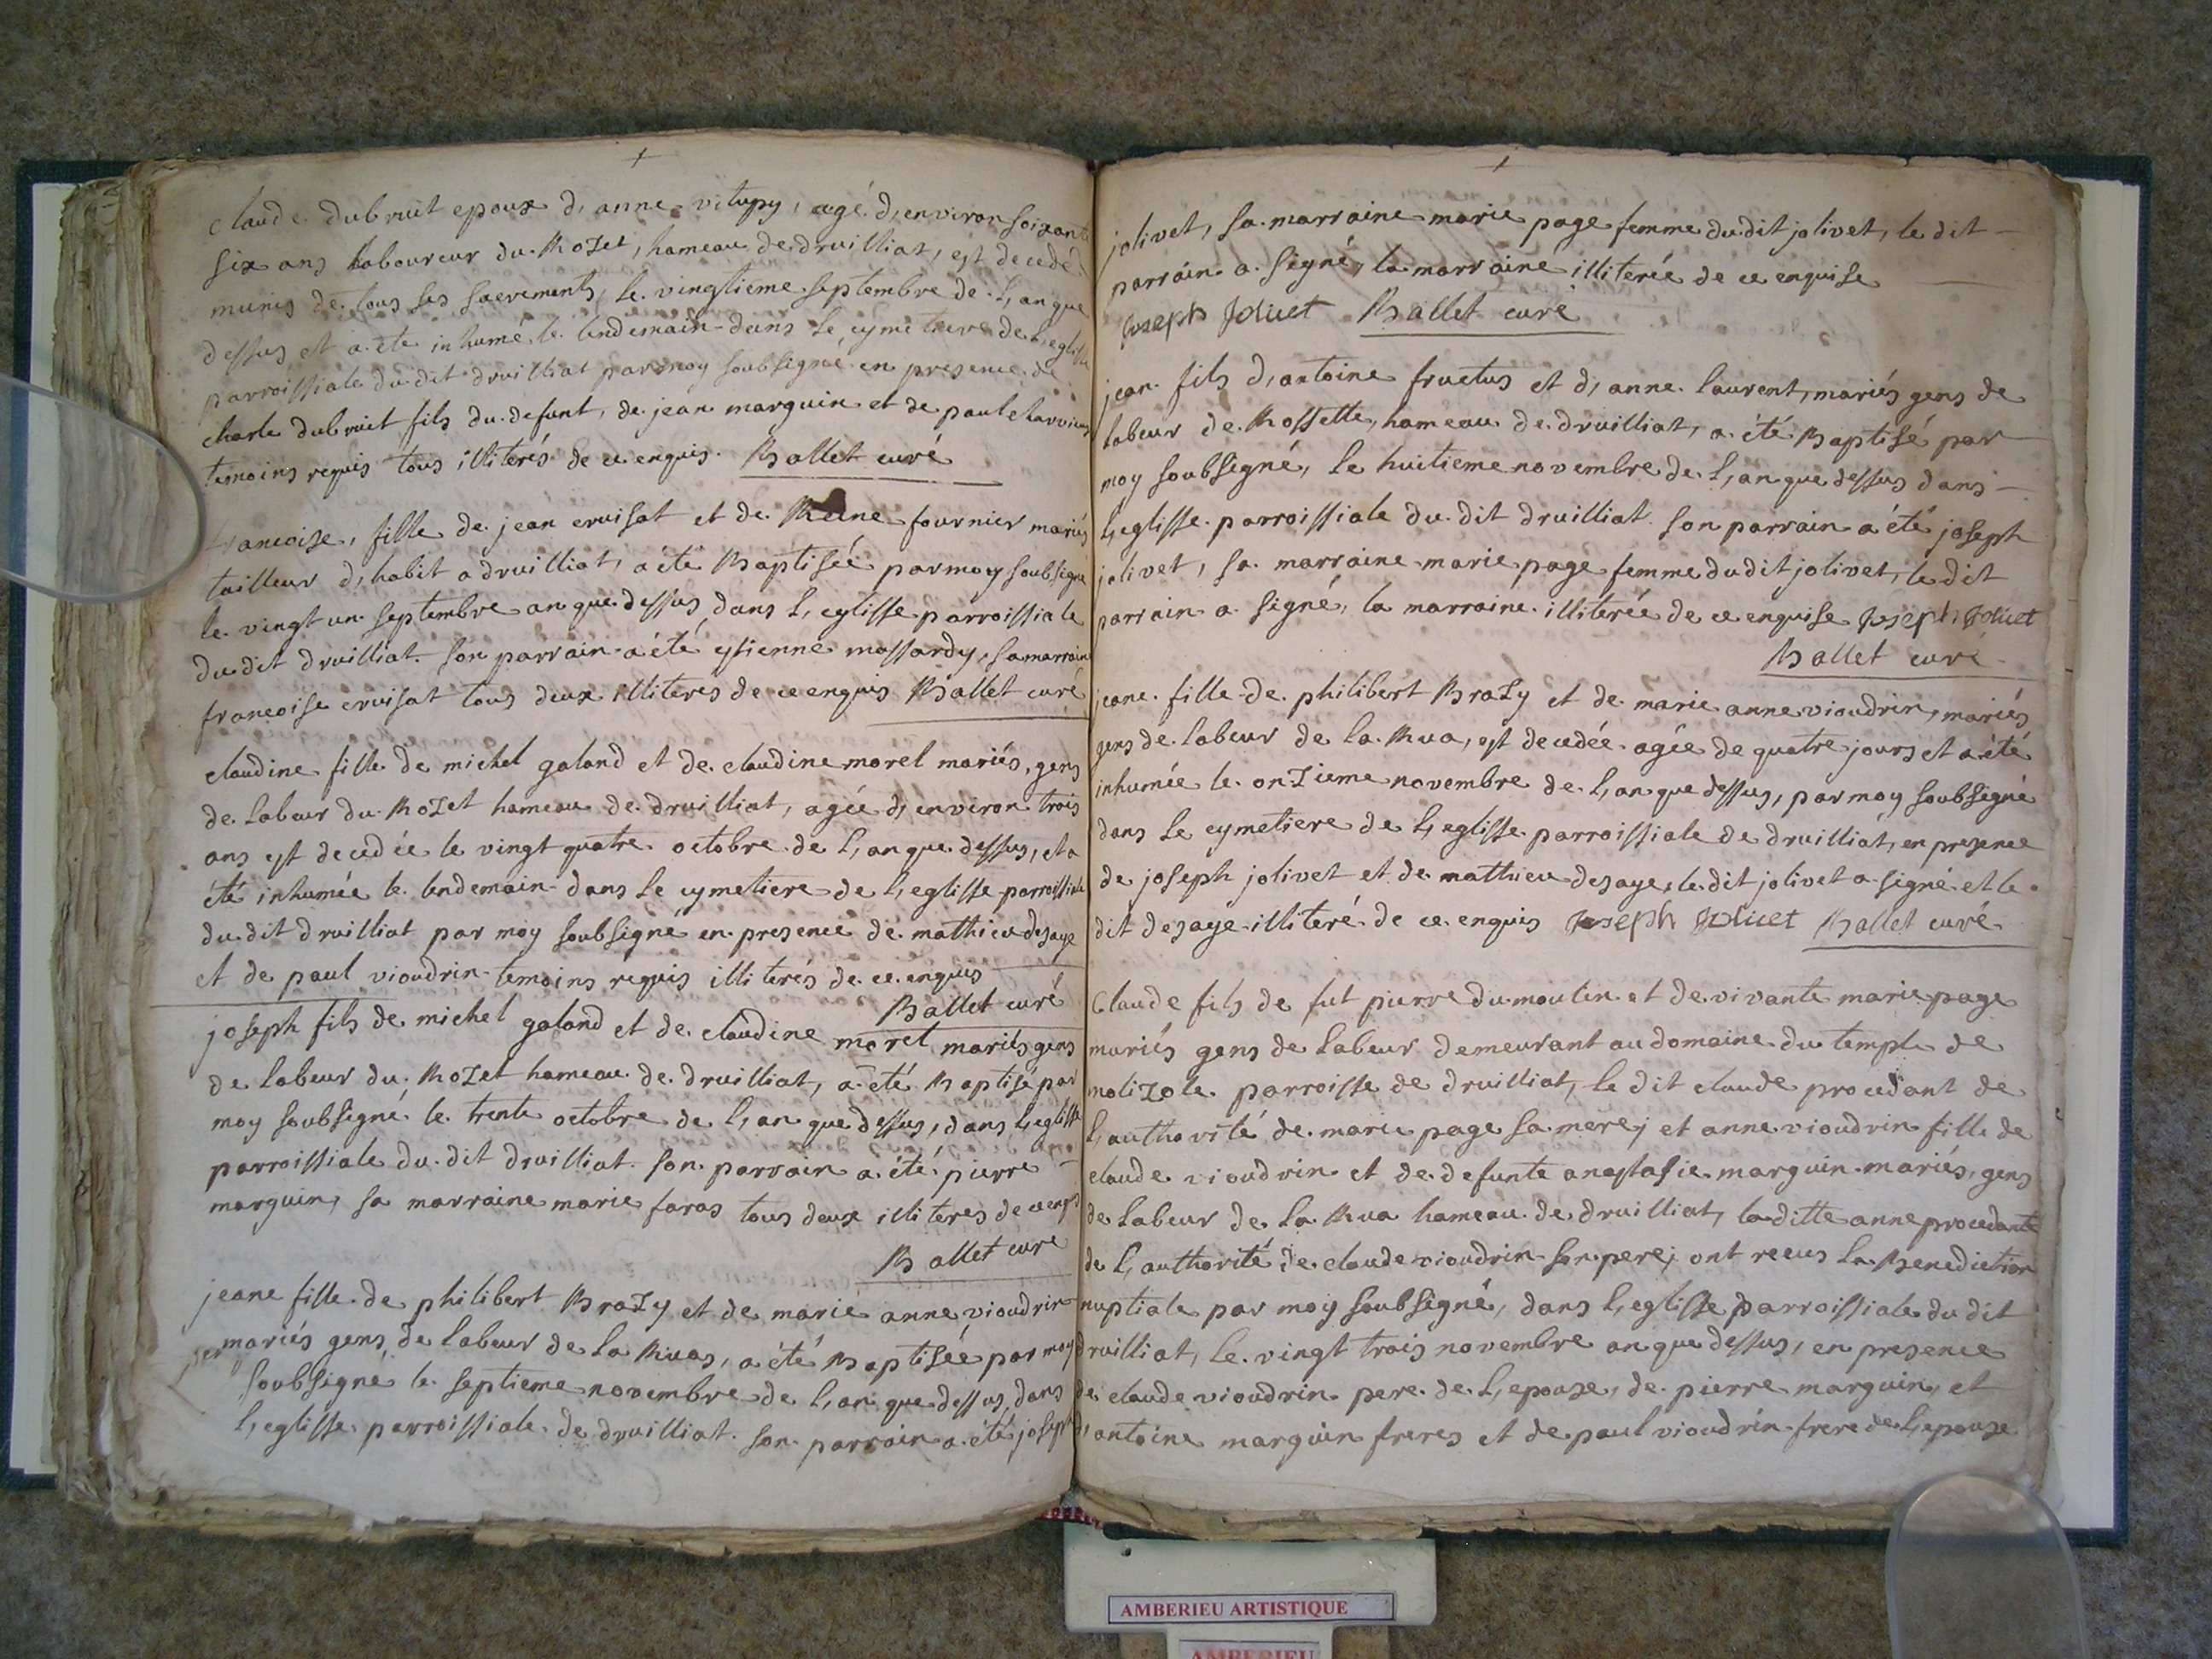 claude dubruit epoux d, anne vitupy, agé d, environ soixante
six ans laboureur du Rozet, hameau de druilliat, est decedé
munis de tous ses sacrements, le vingtieme septembre de l, an que
dessus et a eté inhumé le lendemain dans le cymetiere de l, eglisse
parroissiale du dit druilliat par moy soubsigné en presence de
charle dubruit fils du defunt, de jean marguin et de paul
temoins requis tous illiterés de ce enquis. Ballet curé
francoise, fille de jean cruisat et de Reine fournier mariés
tailleur d, habit a druilliat, a été Baptisée par moy soubsigné
le vingt un septembre an que dessus, dans l, eglisse parroissiale
du dit druilliat. son parrain a été estienne massardy, sa marraine
francoise cruisat tous deux illiteres de ce enquis Ballet curé
claudine fille de michel galand et de claudine morel mariés, gens
de labeur du Rozet hameau de druilliat, agée d, environ trois
ans est decedée le vingt quatre octobre de l, an que dessus, et a
été inhumée le lendemain dans le cymetiere de l, eglisse parroissiale
du dit druilliat par moy soubsigné en presence de mathieu desaye
et de paul vioudrin temoins requis illiterés de ce enquis
Ballet curé
joseph fils de michel galand et de claudine morel mariés gens
de labeur du Rozet hameau de druilliat, a été Baptisé par
moy soubsigné le trente octobre de l, an que dessus, dans l, eglisse
parroissiale du dit druilliat. son parrain a été pierre
marguin, sa marraine marie faras tous deux illiteres de ce enquis
Ballet curé
jeane fille de philibert Brazy et de marie anne vioudrin
mariés gens de labeur de la Ruas, a été Baptisée par moy
soubsigné le septieme novembre de l, an que dessus, dans
l, eglisse parroissiale de druilliat. son parrain a été joseph
jolivet, sa marraine marie page femme du dit jolivet, le dit
parrain a signé, la marraine illiterée de ce enquise
Joseph Joliuet Ballet curé
jean fils d, antoine fructus et d, anne laurent, mariés gens de
labeur de Rossette, hameau de druilliat, a été Baptisé par
moy soubsigné, le huitieme novembre de l, an que dessus dans
l, eglisse parroissiale du dit druilliat. son parrain a été joseph
jolivet, sa marraine marie page femme du dit jolivet, le dit
parrain a signé, la marraine illiterée de ce enquise Joseph Joliuet
Ballet curé
jeane fille de philibert Brazy et de marie anne vioudrin, mariés
gens de labeur de la Rua, est decedée agée de quatre jours et a été
inhumée le onzieme novembre de l, an que dessus, par moy soubsigné
dans le cymetiere de l, eglisse parroissiale de druilliat, en presence
de joseph jolivet et de mathieu desaye, le dit jolivet a signé et le
dit desaye illiteré de ce enquis Joseph Joliuet Ballet curé
Claude fils de fut pierre dumoulin et de vivante marie page
mariés gens de labeur demeurant au domaine du temple de
molizole parroisse de druilliat, le dit claude procedant de
l, authorité de marie page sa mere; et anne vioudrin fille de
claude vioudrin et de defunte anastasie marguin mariés, gens
de labeur de la Rua hameau de druilliat, la ditte anne procedante
de l, authorité de claude vioudrin son pere; ont receus la Benediction
nuptiale par moy soubsigné, dans l, eglisse parroissiale du dit
druilliat, le vingt trois novembre an que dessus, en presence
de claude vioudrin pere de l, epouse, de pierre marguin, et
d, antoine marguin freres et de paul vioudrin frere de l, epouse
AMBERIEU ARTISTIQUE
AMBERIEU